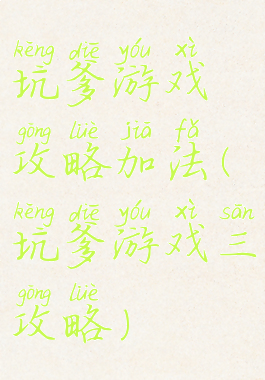 kēng diē yóu xì
坑爹游戏
gōng lüè jiā fǎ
攻略加法(
kēng diē yóu xì sān
坑爹游戏三
gōng lüè
攻略)